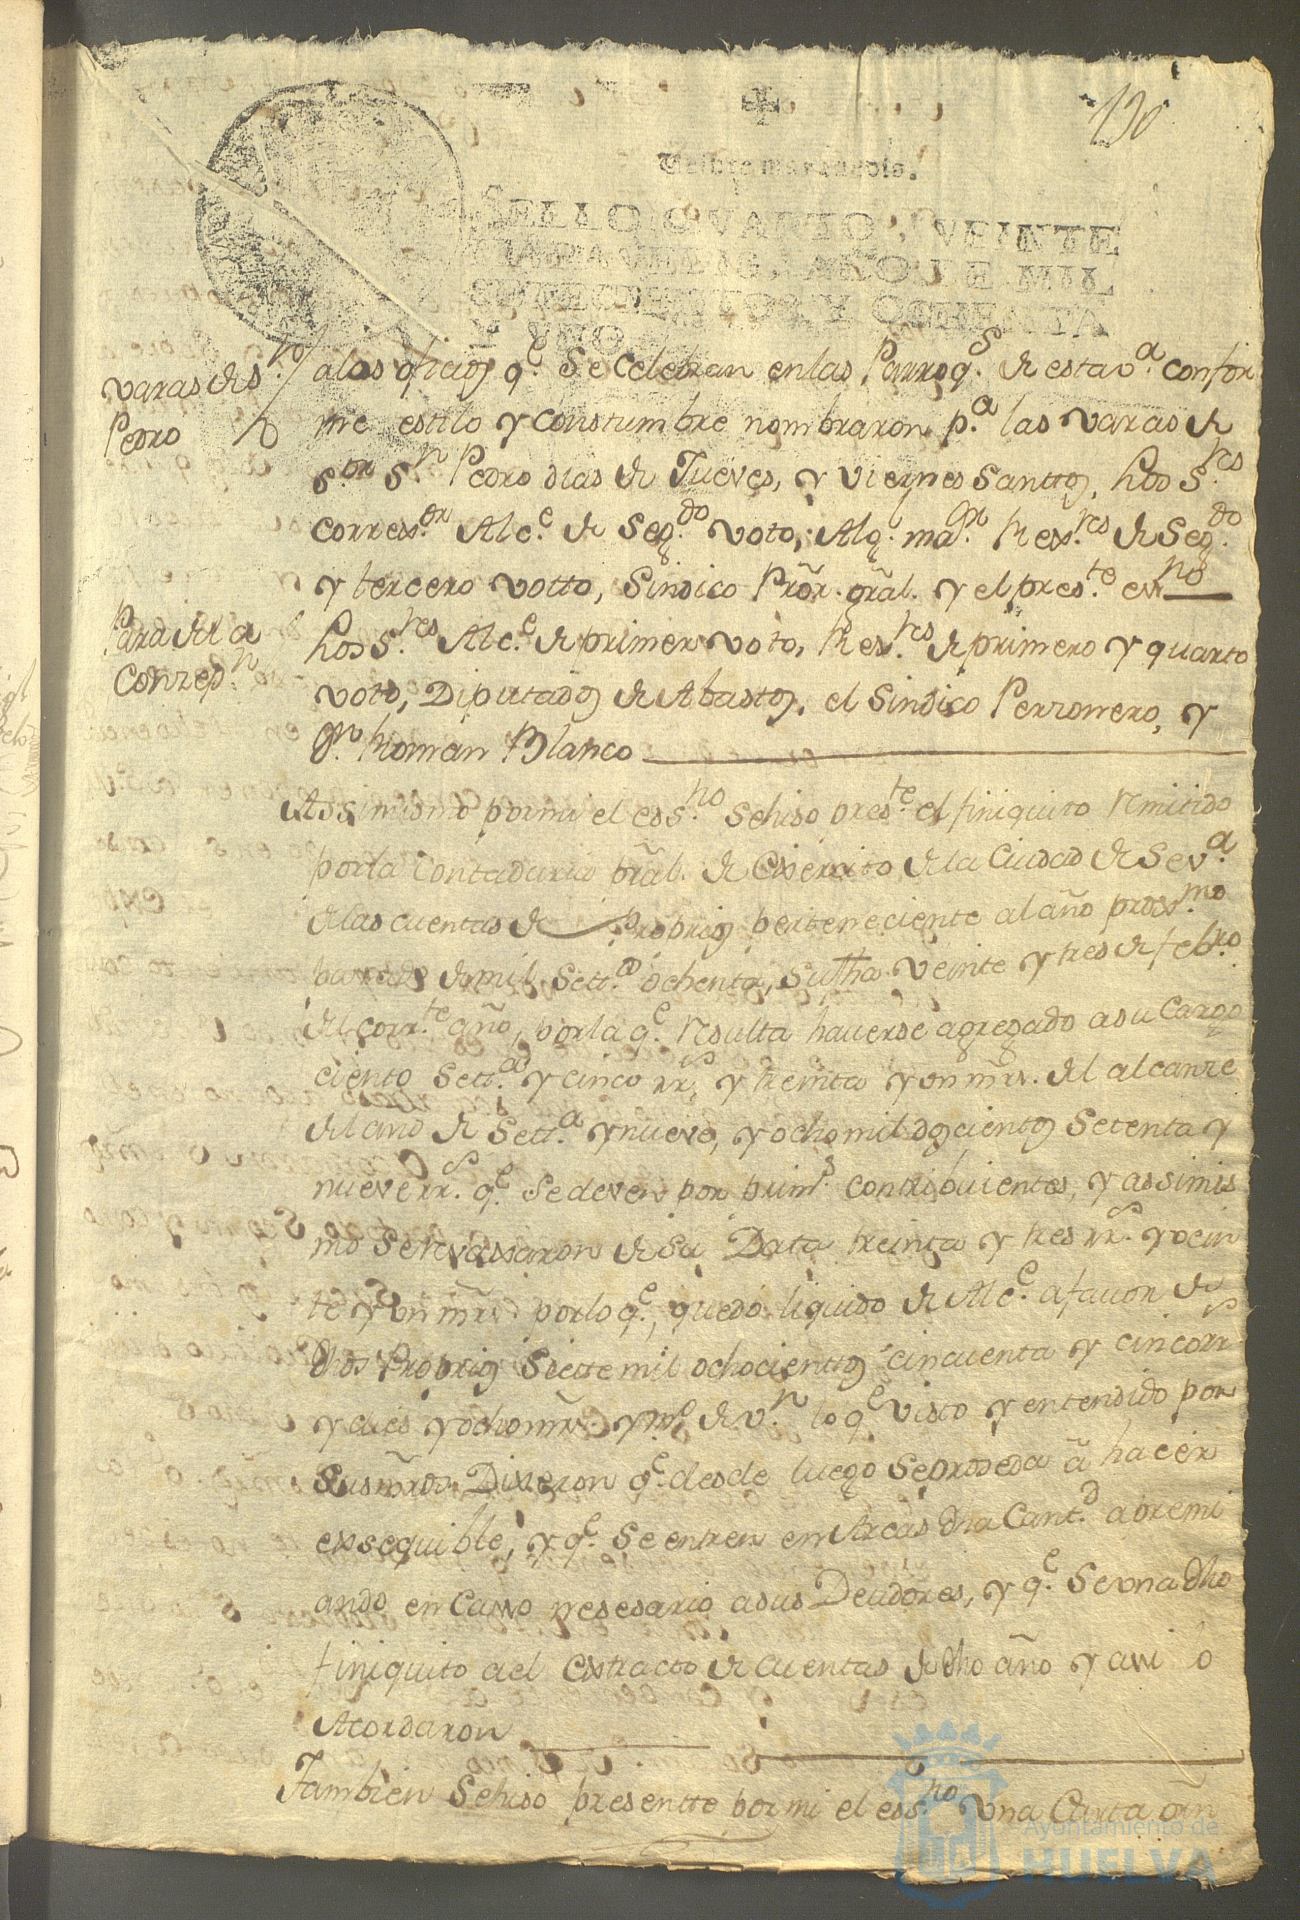 130
Veinte maravedis.
SELLO QVARTO, VEINTE
MARAVEDIS, AÑO DE MIL
SETECIENTOS Y OCHENTA
Y VNO.
varas de S.n
Pedro
a los oficios q.e se celebran en las Parroq.s de esta v.a confor
me estilo y constumbre nombraron p.a las varas de
S.or S.n Pedro dias de Jueves, y Viernes Santtos, Los S.res
Correx.or Alc.e de Seg.do voto, Alg. ma.or Rex.res de Seg.do
y tercero votto, Sindico Prõr. grãl. y el pres.te exno
Para de la
Conzep.n
Los S.res Alc.e de primer voto, Rex.res de primero y quarto
voto, Diputados de Abastos, el Sindico Perzonero, y
Dn. Roman Blanco
Assimismo por mi el ess.no se hiso pres.te el finiquito remitido
por la Contaduria prãl. de Exèrcito de la Ciudad de Sev.a
de las cuentas de Proprios perteneciente al año prox.mo
pasado de mil sett.s ochenta, su fha veinte y tres de feb.ro
del corr.te año, por la q.e resulta haverse agregado a su cargo
ciento sett.a y cinco rr.s y treinta y un mrs. del alcanze
del año de sett.a y nueve, y ocho mil doscientos setenta y
nueve rr.s q.e se deven por prim.s contribuientes, y assimis
mo se revaxaron de su Data treinta y tres rr.s y vein
te y un mrs. por lo q.e quedo liquido de Alc.e a favor de
dhos Proprios siette mil ochocienttos cincuenta y cinco rr.s
y dies y ocho mrs. y m.o de v.n lo q.e visto y entendido por
sus mrds. Dixeron q.e desde luego se proseda â hacer
exsequible, y q.e se entren en Arcas dha Cant.d apremi
ando en Casso nesesario a sus Deudores, y q.e se una dho
finiquito a el extracto de cuentas de dho año y assi lo
Acordaron
Tambien se hiso presentte por mi el ess.no una Carta orñ
Ayuntamiento de
HUELVA